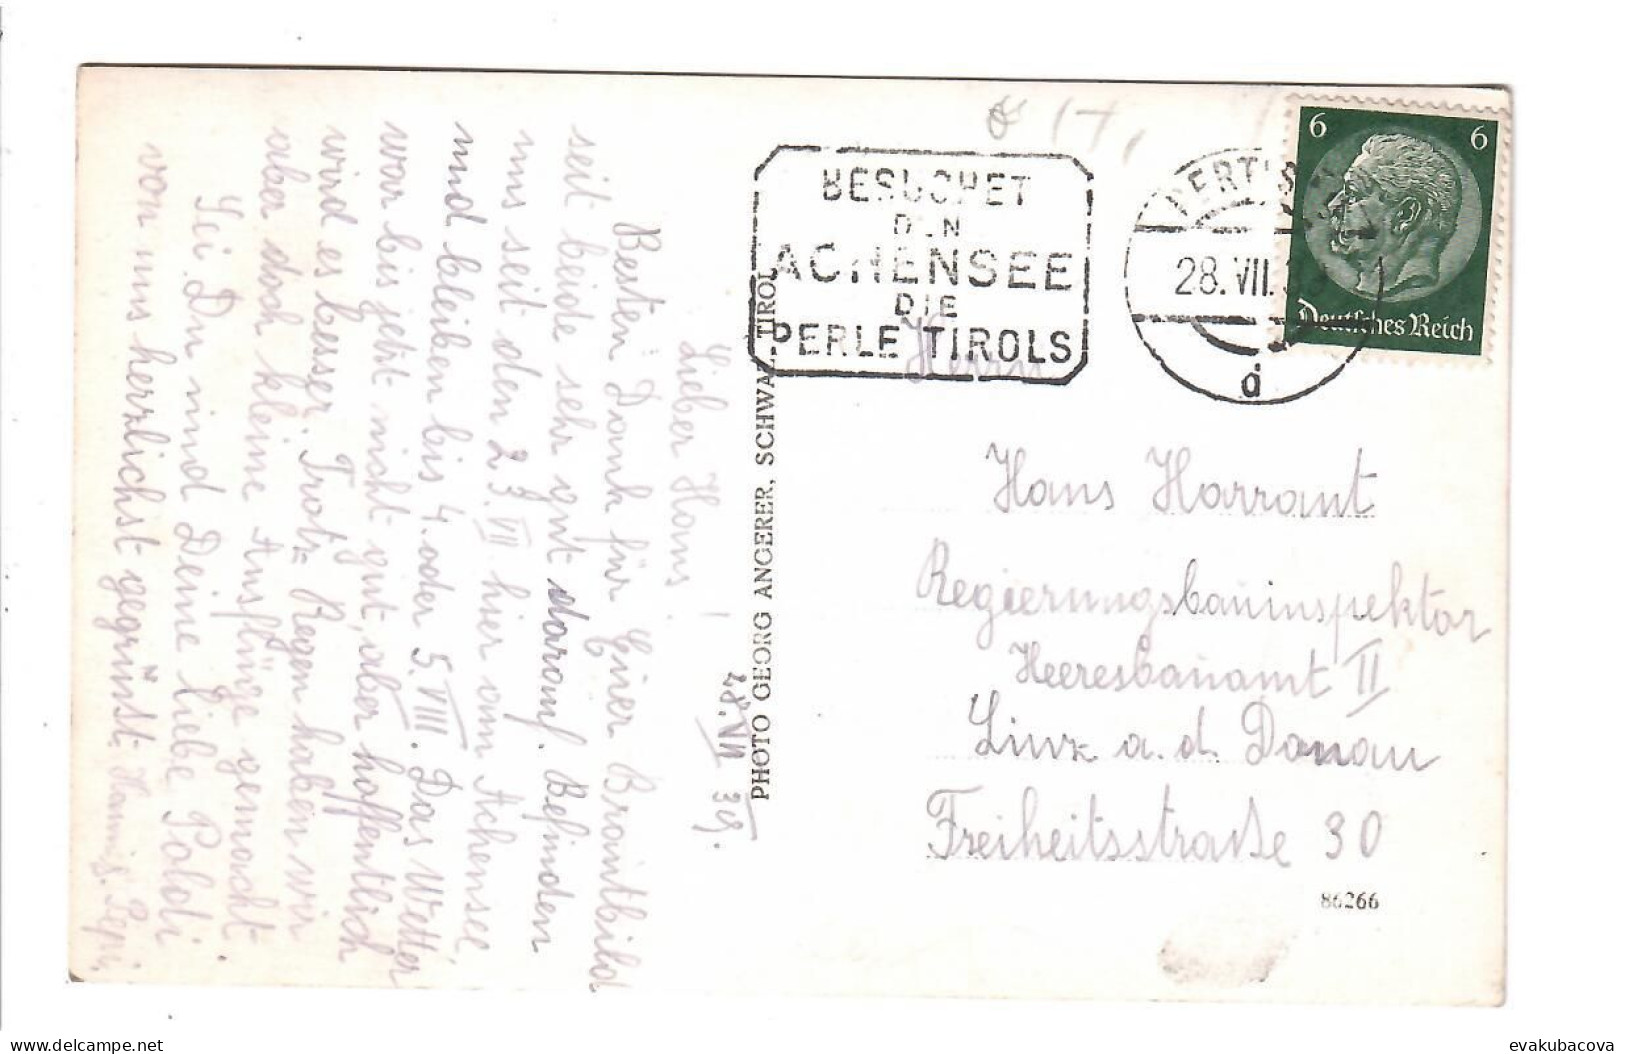 BESUCHET
DEN
ACHENSEE
DIE
PERLE TIROLS
PERTISAU
28. VII.
d
6 6
Deutsches Reich
PHOTO GEORG ANGERER, SCHWAZ - TIROL
28. VII 39.
Lieber Hans!
Besten Dank für Euer Brautbild
seit beide sehr gut darauf. Befinden
uns seit den 23. VII hier am Achensee,
und bleiben bis 4. oder 5. VIII. Das Wetter
war bis jetzt nicht gut, aber hoffentlich
wird es besser. Trotz Regen haben wir
aber doch kleine Ausflüge gemacht
Sei Du und Deine liebe Poldi
von uns herzlichst gegrüsst. Hanni, Pepi
Herrn
Hans Harrant
Regierungsbauinspektor
Heeresbauamt II
Linz a. d. Donau
Freiheitsstraße 30
86266
delcampe.net
evakubacova